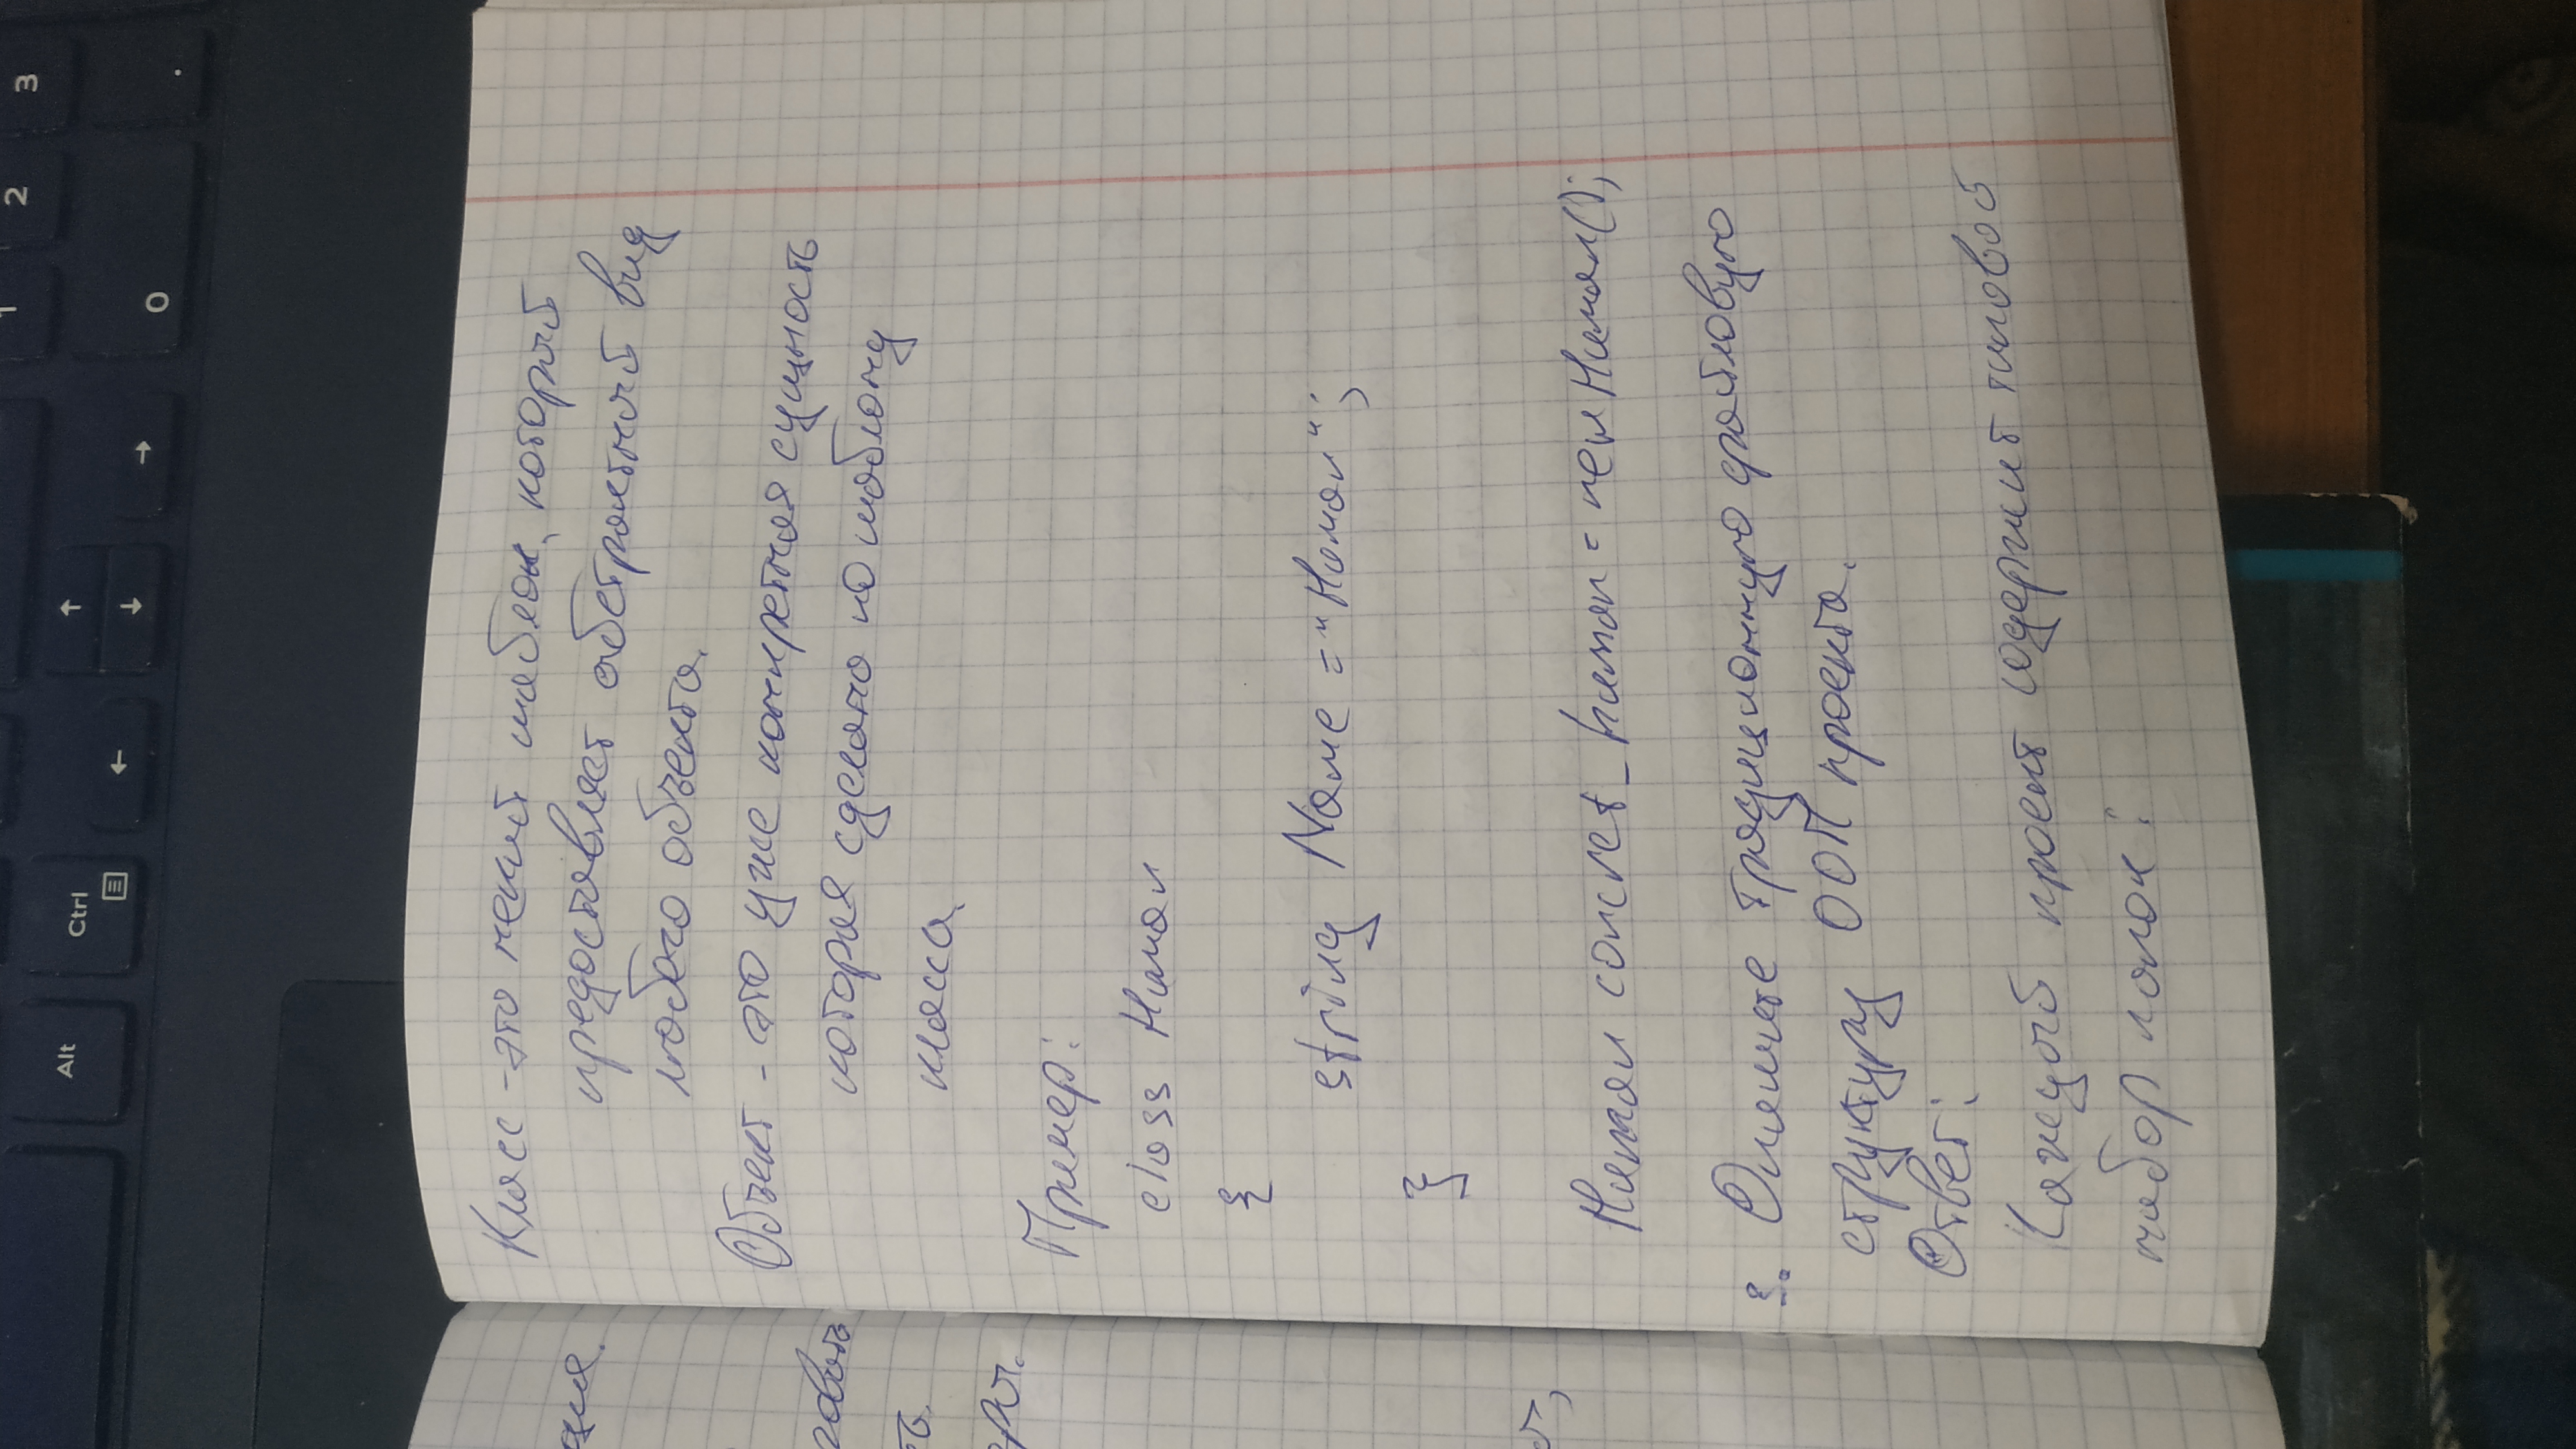 1 2 3
Alt Ctrl ↑
← ↓ → 0 .
Класс - это некий шаблон, который
предоставляет абстрактный вид
любого объекта.
Объект - это уже конкретная сущность
которая сделана по шаблону
класса.
Пример:
class Human
{
string Name = "Human";
}
Human concret_human = new Human();
3. Опишите традиционную файловую
структуру ООП проекта.
Ответ:
Каждый проект содержит типовой
набор папок: